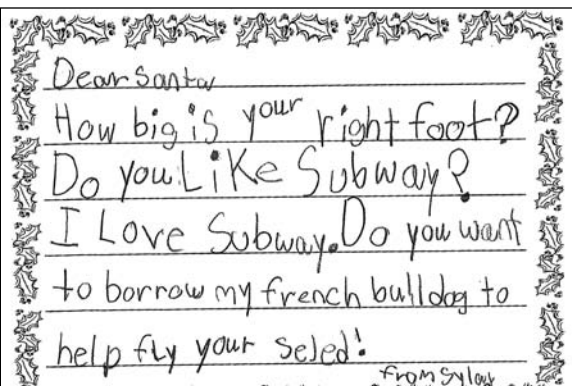 Dear Santa
How big is your right foot?
Do you Like Subway?
I Love Subway. Do you want
to borrow my french bulldog to
help fly your seled!
from